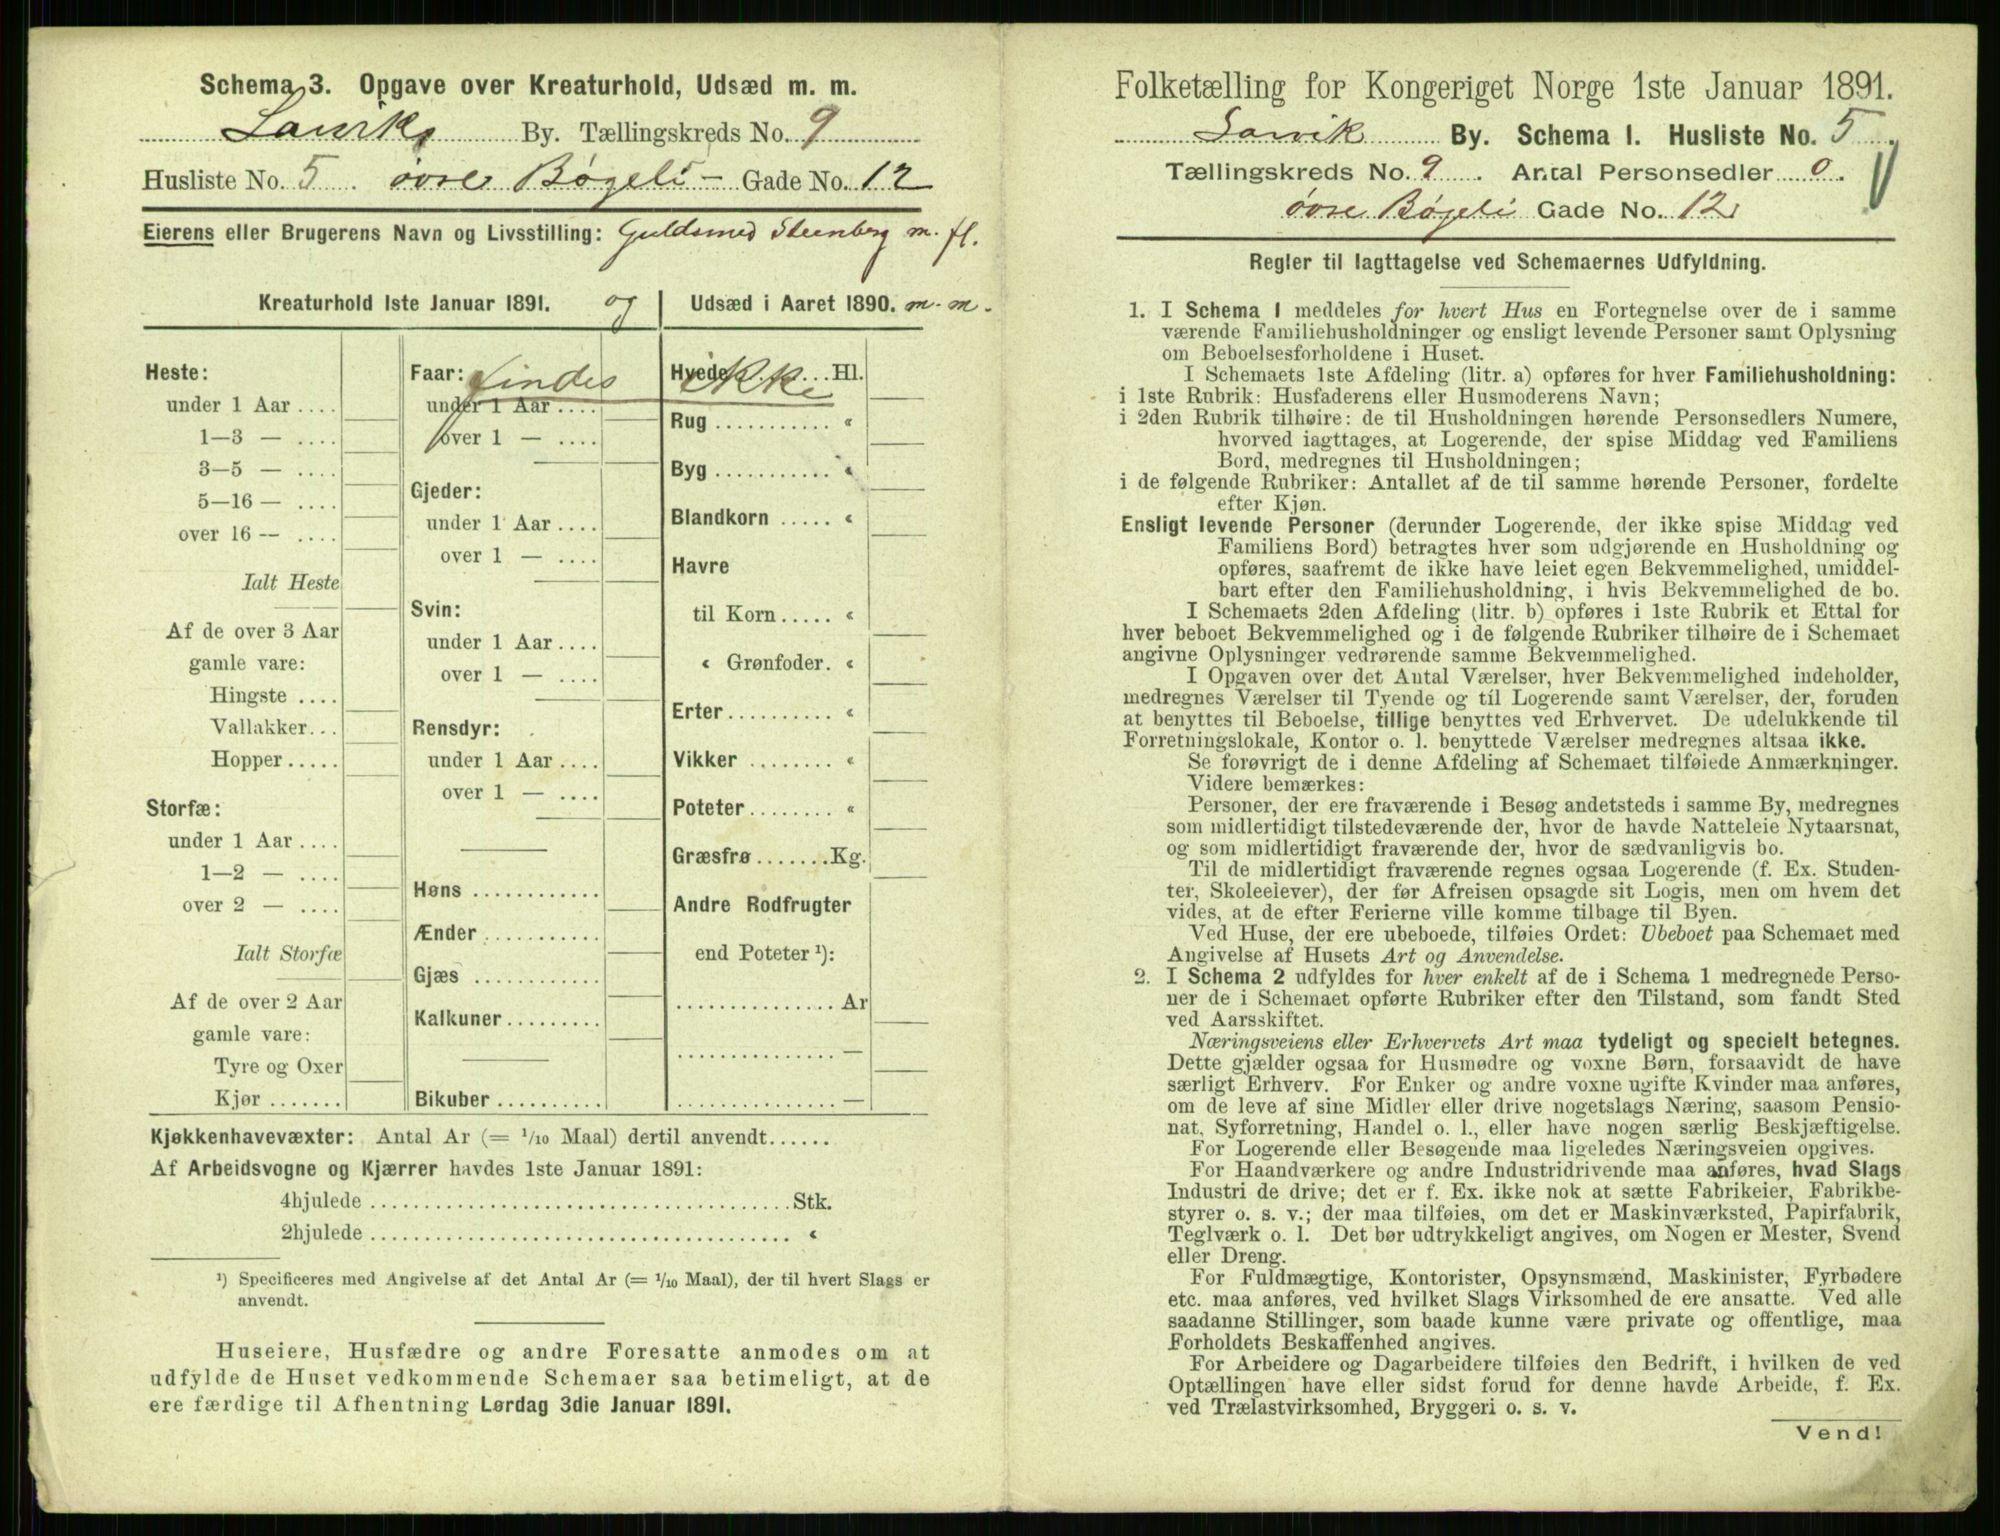 Schema 3. Opgave over Kreaturhold, Udsæd m. m.
Laurviks By. Tællingskreds No. 9
Husliste No. 5. øvre Bøgeli - Gade No. 12
Eierens eller Brugerens Navn og Livsstilling: Guldsmed Steenberg m. fl.
Kreaturhold 1ste Januar 1891. og Udsæd i Aaret 1890. m. m.
Heste:
under 1 Aar ....
1—3 — ....
3—5 — ....
5—16 — ....
over 16 — ....
Ialt Heste
Af de over 3 Aar
gamle vare:
Hingste ....
Vallakker...
Hopper.....
Storfæ:
under 1 Aar ....
1—2 — ....
over 2 — ....
Ialt Storfæ
Af de over 2 Aar
gamle vare:
Tyre og Oxer
Kjør .......
Faar: findes ikke
under 1 Aar ....
over 1 — ....
Gjeder:
under 1 Aar ....
over 1 — ....
Svin:
under 1 Aar ....
over 1 — ....
Rensdyr:
under 1 Aar ....
over 1 — ....
Høns ............
Ænder ...........
Gjæs ............
Kalkuner.........
Bikuber ..........
Hvede........Hl.
Rug ........... «
Byg ........... «
Blandkorn ..... «
Havre
til Korn..... «
« Grønfoder. «
Erter.......... «
Vikker ........ «
Poteter........ «
Græsfrø.......Kg.
Andre Rodfrugter
end Poteter ¹):
...............Ar
............... —
............... —
Kjøkkenhavevæxter: Antal Ar (= 1/10 Maal) dertil anvendt......
Af Arbeidsvogne og Kjærrer havdes 1ste Januar 1891:
4hjulede .....................................Stk.
2hjulede ..................................... «
¹) Specificeres med Angivelse af det Antal Ar (= 1/10 Maal), der til hvert Slags er
anvendt.
Huseiere, Husfædre og andre Foresatte anmodes om at
udfylde de Huset vedkommende Schemaer saa betimeligt, at de
ere færdige til Afhentning Lørdag 3die Januar 1891.
Folketælling for Kongeriget Norge 1ste Januar 1891.
Larvik By. Schema I. Husliste No. 5
Tællingskreds No. 9. Antal Personsedler 0.
øvre Bøgeli Gade No. 12
Regler til Iagttagelse ved Schemaernes Udfyldning.
1. I Schema I meddeles for hvert Hus en Fortegnelse over de i samme
værende Familiehusholdninger og ensligt levende Personer samt Oplysning
om Beboelsesforholdene i Huset.
I Schemaets 1ste Afdeling (litr. a) opføres for hver Familiehusholdning:
i 1ste Rubrik: Husfaderens eller Husmoderens Navn;
i 2den Rubrik tilhøire: de til Husholdningen hørende Personsedlers Numere,
hvorved iagttages, at Logerende, der spise Middag ved Familiens
Bord, medregnes til Husholdningen;
i de følgende Rubriker: Antallet af de til samme hørende Personer, fordelte
efter Kjøn.
Ensligt levende Personer (derunder Logerende, der ikke spise Middag ved
Familiens Bord) betragtes hver som udgjørende en Husholdning og
opføres, saafremt de ikke have leiet egen Bekvemmelighed, umiddel-
bart efter den Familiehusholdning, i hvis Bekvemmelighed de bo.
I Schemaets 2den Afdeling (litr. b) opføres i 1ste Rubrik et Ettal for
hver beboet Bekvemmelighed og i de følgende Rubriker tilhøire de i Schemaet
angivne Oplysninger vedrørende samme Bekvemmelighed.
I Opgaven over det Antal Værelser, hver Bekvemmelighed indeholder,
medregnes Værelser til Tyende og til Logerende samt Værelser, der, foruden
at benyttes til Beboelse, tillige benyttes ved Erhvervet. De udelukkende til
Forretningslokale, Kontor o. l. benyttede Værelser medregnes altsaa ikke.
Se forøvrigt de i denne Afdeling af Schemaet tilføiede Anmærkninger.
Videre bemærkes:
Personer, der ere fraværende i Besøg andetsteds i samme By, medregnes
som midlertidigt tilstedeværende der, hvor de havde Natteleie Nytaarsnat,
og som midlertidigt fraværende der, hvor de sædvanligvis bo.
Til de midlertidigt fraværende regnes ogsaa Logerende (f. Ex. Studen-
ter, Skoleelever), der før Afreisen opsagde sit Logis, men om hvem det
vides, at de efter Ferierne ville komme tilbage til Byen.
Ved Huse, der ere ubeboede, tilføies Ordet: Ubeboet paa Schemaet med
Angivelse af Husets Art og Anvendelse.
2. I Schema 2 udfyldes for hver enkelt af de i Schema 1 medregnede Perso-
ner de i Schemaet opførte Rubriker efter den Tilstand, som fandt Sted
ved Aarsskiftet.
Næringsveiens eller Erhvervets Art maa tydeligt og specielt betegnes.
Dette gjælder ogsaa for Husmødre og voxne Børn, forsaavidt de have
særligt Erhverv. For Enker og andre voxne ugifte Kvinder maa anføres,
om de leve af sine Midler eller drive nogetslags Næring, saasom Pensio-
nat, Syforretning, Handel o. l., eller have nogen særlig Beskjæftigelse.
For Logerende eller Besøgende maa ligeledes Næringsveien opgives.
For Haandværkere og andre Industridrivende maa anføres, hvad Slags
Industri de drive; det er f. Ex. ikke nok at sætte Fabrikeier, Fabrikbe-
styrer o. s. v.; der maa tilføies, om det er Maskinværksted, Papirfabrik,
Teglværk o. l. Det bør udtrykkeligt angives, om Nogen er Mester, Svend
eller Dreng.
For Fuldmægtige, Kontorister, Opsynsmænd, Maskinister, Fyrbødere
etc. maa anføres, ved hvilket Slags Virksomhed de ere ansatte. Ved alle
saadanne Stillinger, som baade kunne være private og offentlige, maa
Forholdets Beskaffenhed angives.
For Arbeidere og Dagarbeidere tilføies den Bedrift, i hvilken de ved
Optællingen have eller sidst forud for denne havde Arbeide, f. Ex.
ved Trælastvirksomhed, Bryggeri o. s. v.
Vend!